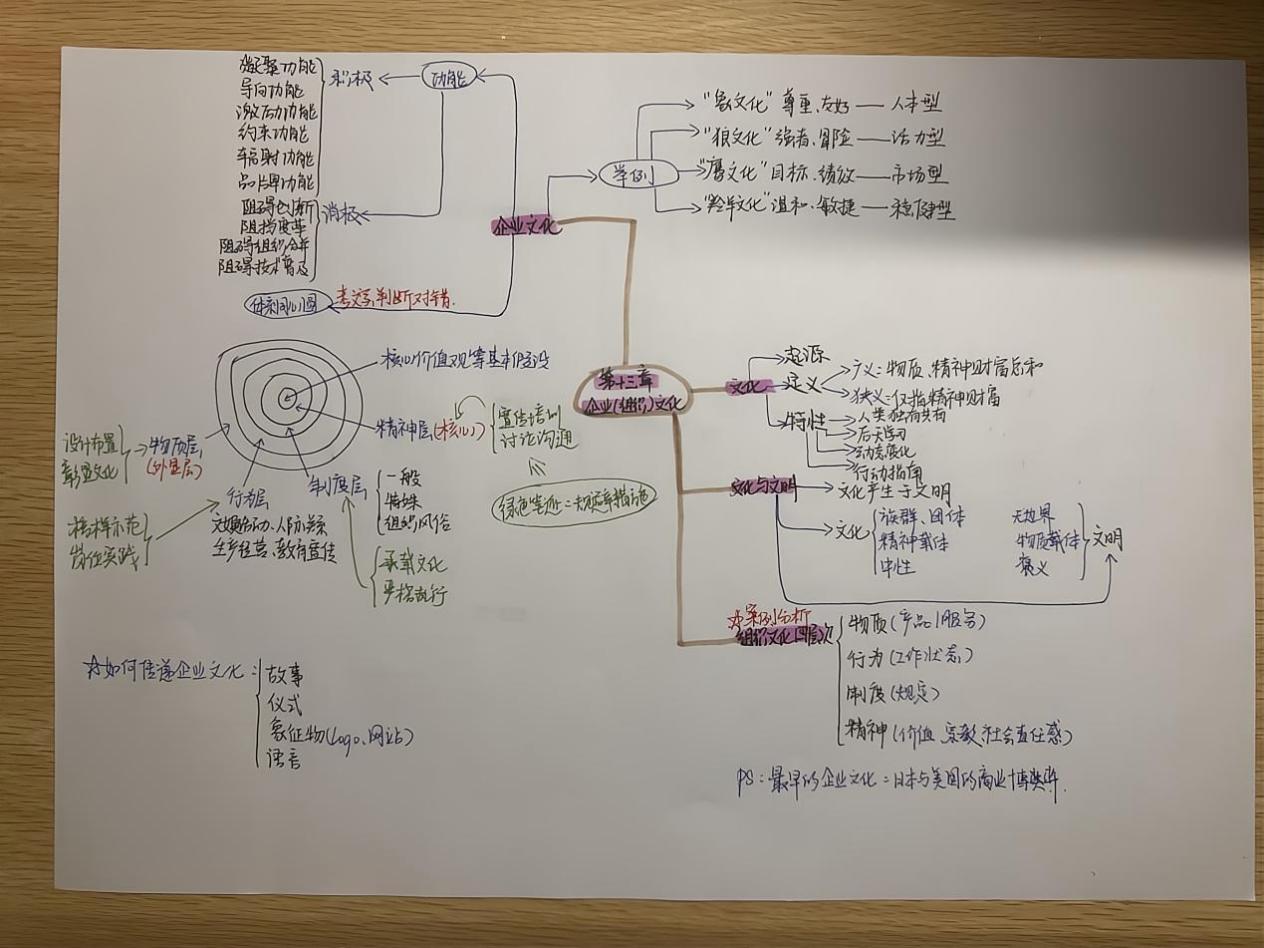 第十三章
企业(组织)文化
企业文化
功能
积极
凝聚功能
导向功能
激励功能
约束功能
辐射功能
品牌功能
消极
阻碍创新
阻挡变革
阻碍组织合并
阻碍技术普及
举例
"象文化" 尊重、友好 —— 人本型
"狼文化" 强者、冒险 —— 活力型
"鹰文化" 目标、绩效 —— 市场型
"羚羊文化" 温和、敏捷 —— 稳健型
同心圆
判断对错.
核心价值观等基本假设
精神层(核心)
宣传培训
讨论沟通
绿色笔迹=
制度层
一般
特殊
组织风俗
承载文化
严格执行
行为层
文娱活动、人际关系
生产经营、教育宣传
榜样示范
岗位实践
物质层
(外显层)
设计布置
彰显文化
文化
起源
定义
广义:物质、精神财富总和
狭义:仅指精神财富
特性
人类独有共有
后天学习
动态变化
行动指南
文化与文明
文化产生于文明
文化
族群、团体
精神载体
中性
无边界
物质载体
褒义
文明
☆案例分析
组织文化四层次
物质(产品/服务)
行为(工作状态)
制度(规定)
精神(价值、宗教、社会责任感)
PS:最早的企业文化=日本与美国的商业博弈.
☆如何传递企业文化:
故事
仪式
象征物(Logo、网站)
语言